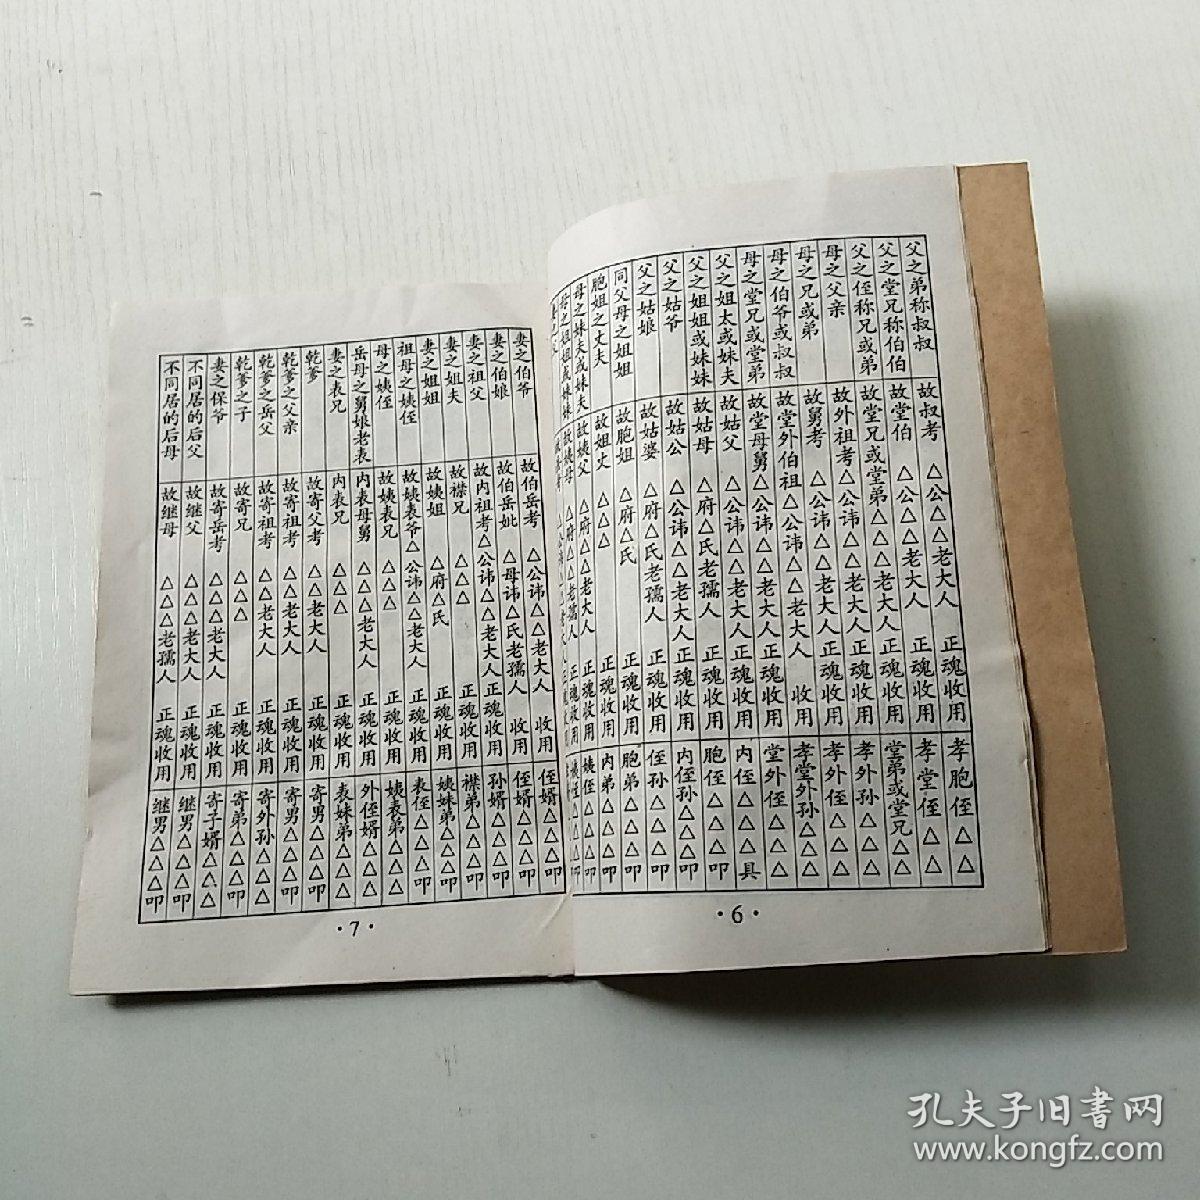 父之弟称叔叔 故叔考 △公△△老大人 正魂收用 孝胞侄△△
父之堂兄称伯伯 故堂伯 △公△△老大人 正魂收用 孝堂侄△△
父之侄称兄或弟 故堂兄或堂弟△△△老大人 正魂收用 堂弟或堂兄△△
母之父亲 故外祖考△公讳△△老大人 正魂收用 孝外孙△△
母之兄或弟 故舅考 △公讳△△老大人 正魂收用 孝外侄△△
母之伯爷或叔叔 故堂外伯祖△公讳△△老大人 收用 孝堂外孙△△
母之堂兄或堂弟 故堂母舅△公讳△△老大人 正魂收用 堂外侄△△
父之姐太或妹夫 故姑父 △公讳△△老大人 正魂收用 内侄△△△具
父之姐姐或妹妹 故姑母 △府△氏老孺人 正魂收用 胞侄△△△叩
父之姑爷 故姑公 △公讳△△老大人 正魂收用 内侄孙△△叩
父之姑娘 故姑婆 △府△氏老孺人 正魂收用 侄孙△△△叩
同父母之姐姐 故胞姐 △府△氏 正魂收用 胞弟△△△叩
胞姐之丈夫 故姐丈 △△△ 正魂收用 内弟△△△叩
母之妹夫或妹夫 故姨父 △府△△老大人 正魂收用 姨侄△△△叩
母之姐姐或妹妹 故姨母
·6·
妻之伯爷 故伯岳考 △公讳△△老大人 收用 侄婿△△△叩
妻之伯娘 故伯岳妣 △母讳△氏老孺人 收用 侄婿△△△叩
妻之祖父 故内祖考△公讳△△老大人正魂收用 孙婿△△△叩
妻之姐夫 故襟兄 △△△ 正魂收用 襟弟△△△叩
妻之姐姐 故姨姐 △府△氏 正魂收用 姨妹弟△△叩
祖母之姨侄 故姨表爷△公讳△△老大人 正魂收用 表侄△△△叩
母之姨侄 故姨表兄 △△△ 正魂收用 姨表弟△△△
岳母之舅娘老表 内表母舅 △△△老大人 正魂收用 外侄婿△△△
妻之表兄 内表兄 △△△ 正魂收用 表妹弟△△△
乾爹 故寄父考 △△老大人 正魂收用 寄男△△△叩
乾爹之父亲 故寄祖考 △△老大人 正魂收用 寄男△△△叩
乾爹之岳父 故寄祖考 △△老大人 正魂收用 寄外孙△△叩
乾爹之子 故寄兄 △△△ 正魂收用 寄弟△△△叩
妻之保爷 故寄岳考 △△△老大人 正魂收用 寄子婿△△△
不同居的后父 故继父 △△△老大人 正魂收用 继男△△△叩
不同居的后母 故继母 △△△老孺人 正魂收用 继男△△△叩
·7·
孔夫子旧書网
www.kongfz.com